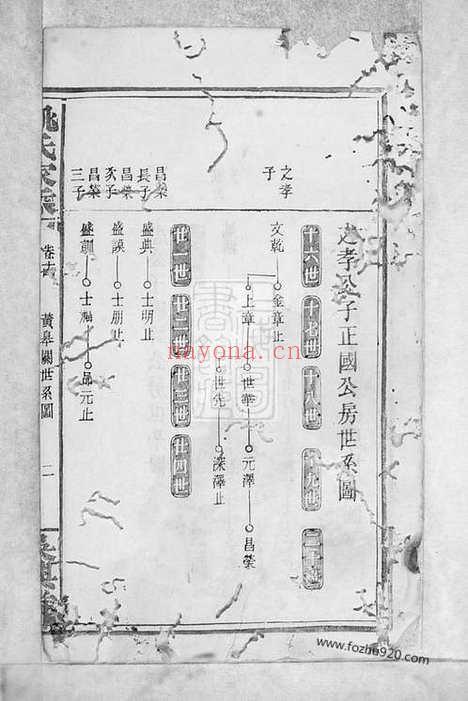 之孝公子正國公房世系圖
十六世 十七世 十八世 十九世 二十世
之孝
子
文乾 金章止
上章 世華 元澤 昌榮
世先 深澤止
廿一世 廿二世 廿三世 廿四世
昌榮
長子
盛典 士明止
昌榮
次子
盛謨 士朋止
昌榮
三子
盛訓 昂元止
姚氏家乘
黃皋闗世系圖
二
nayona.cn
www.fozhu920.com